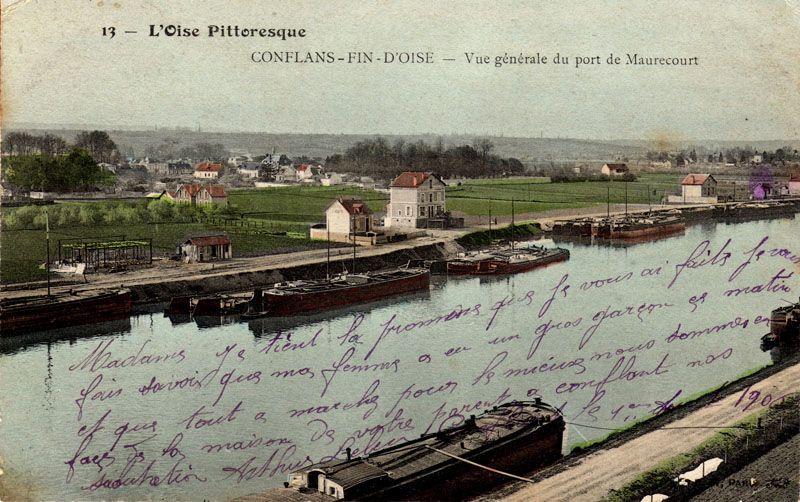 13 — L'Oise Pittoresque
CONFLANS-FIN-D'OISE — Vue générale du port de Maurecourt
Madame je tient la promesse que je vous ai faits je vous
fais savoir que ma femme a eu un gros garçon ce matin
et que tout a marché pour le mieux nous sommes en
face de la maison de votre parent a conflant nos
salutation Arthur le 1er 190
PARIS